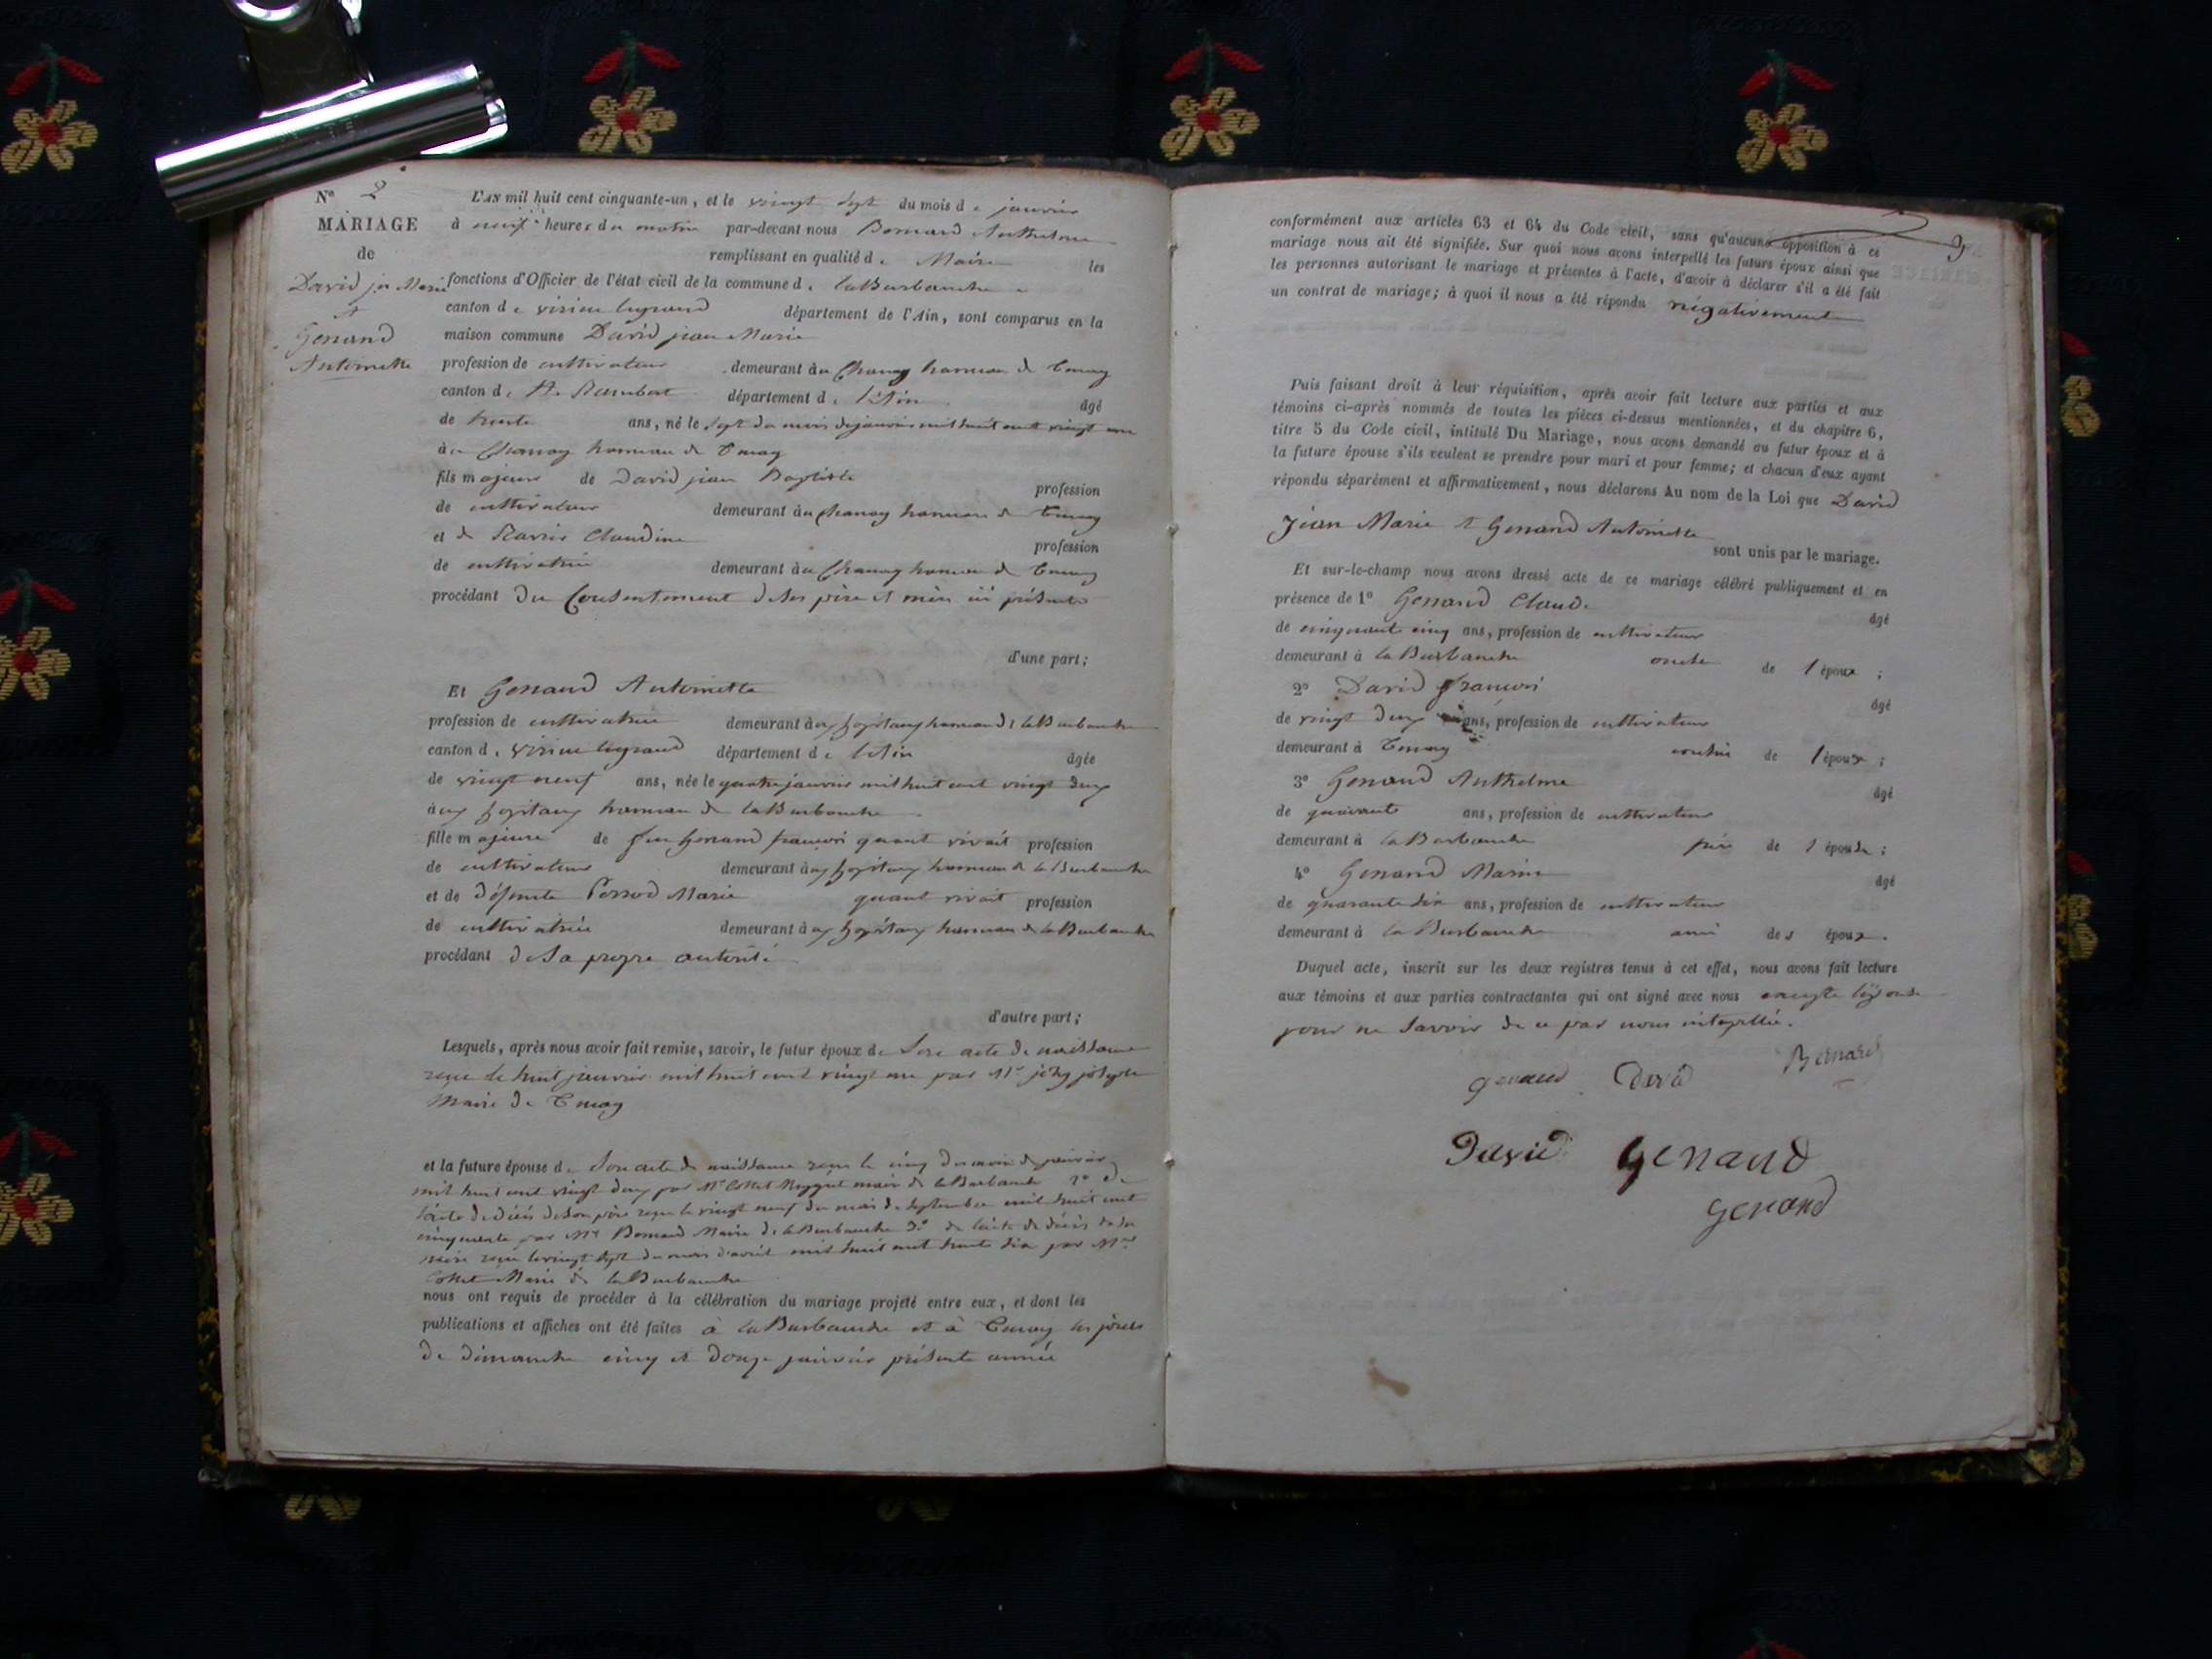 N° 2
MARIAGE
de
David jn Marie
et
Genand
Antoinette
L'AN mil huit cent cinquante-un, et le vingt sept du mois de janvier
à neuf heures du matin par-devant nous Bernard Anthelme
remplissant en qualité de Maire les
fonctions d'Officier de l'état civil de la commune de la Burbanche
canton de virieu legrand département de l'Ain, sont comparus en la
maison commune David jean Marie
profession de cultivateur demeurant au Chanay hameau de Tenay
canton de St. Rambert département de l'Ain âgé
de trente ans, né le sept du mois de janvier mil huit cent vingt un
au Chanay hameau de Tenay
fils majeur de David jean Baptiste profession
de cultivateur demeurant au Chanay hameau de Tenay
et de Claudine profession
de cultivatrice demeurant au Chanay hameau de Tenay
procédant du Consentement de ses père et mère ici présents
d'une part;
Et Genand Antoinette
profession de cultivatrice demeurant aux hameau de la Burbanche
canton de virieu legrand département de l'Ain âgée
de vingt neuf ans, née le quatre janvier mil huit cent vingt deux
aux hameau de la Burbanche
fille majeure de feu Genand françois quant vivait profession
de cultivateur demeurant aux hameau de la Burbanche
et de défunte Marie quant vivait profession
de cultivatrice demeurant aux hameau de la Burbanche
procédant de sa propre autorité
d'autre part;
Lesquels, après nous avoir fait remise, savoir, le futur époux de son acte de naissance
reçu le huit janvier mil huit cent vingt un par Mr
Maire de Tenay
et la future épouse de son acte de naissance reçu le cinq du mois de janvier
mil huit cent vingt deux par Mr maire de la Burbanche 2° de
l'acte de décès de son père reçu le vingt neuf du mois de septembre mil huit cent
cinquante par Mr Bernard Maire de la Burbanche 3° de l'acte de décès de sa
mère reçu le vingt sept du mois d'avril mil huit cent trente six par Mr
Maire de la Burbanche
nous ont requis de procéder à la célébration du mariage projeté entre eux, et dont les
publications et affiches ont été faites à la Burbanche et à Tenay les jours
de dimanche cinq et douze janvier présente année
9
conformément aux articles 63 et 64 du Code civil, sans qu'aucune opposition à ce
mariage nous ait été signifiée. Sur quoi nous avons interpellé les futurs époux ainsi que
les personnes autorisant le mariage et présentes à l'acte, d'avoir à déclarer s'il a été fait
un contrat de mariage; à quoi il nous a été répondu négativement
Puis faisant droit à leur réquisition, après avoir fait lecture aux parties et aux
témoins ci-après nommés de toutes les pièces ci-dessus mentionnées, et du chapitre 6,
titre 5 du Code civil, intitulé Du Mariage, nous avons demandé au futur époux et à
la future épouse s'ils veulent se prendre pour mari et pour femme; et chacun d'eux ayant
répondu séparément et affirmativement, nous déclarons Au nom de la Loi que David
Jean Marie et Genand Antoinette
sont unis par le mariage.
Et sur-le-champ nous avons dressé acte de ce mariage célébré publiquement et en
présence de 1° Genand Claude âgé
de cinquante cinq ans, profession de cultivateur
demeurant à la Burbanche oncle de l'époux ;
2° David françois âgé
de vingt deux ans, profession de cultivateur
demeurant à Tenay cousin de l'époux ;
3° Genand Anthelme âgé
de quarante ans, profession de cultivateur
demeurant à la Burbanche de l'épouse ;
4° Genand âgé
de quarante six ans, profession de cultivateur
demeurant à la Burbanche ami des époux.
Duquel acte, inscrit sur les deux registres tenus à cet effet, nous avons fait lecture
aux témoins et aux parties contractantes qui ont signé avec nous excepté
pour ne savoir de ce par nous interpellée.
genand David Bernard
David Genand
Genand